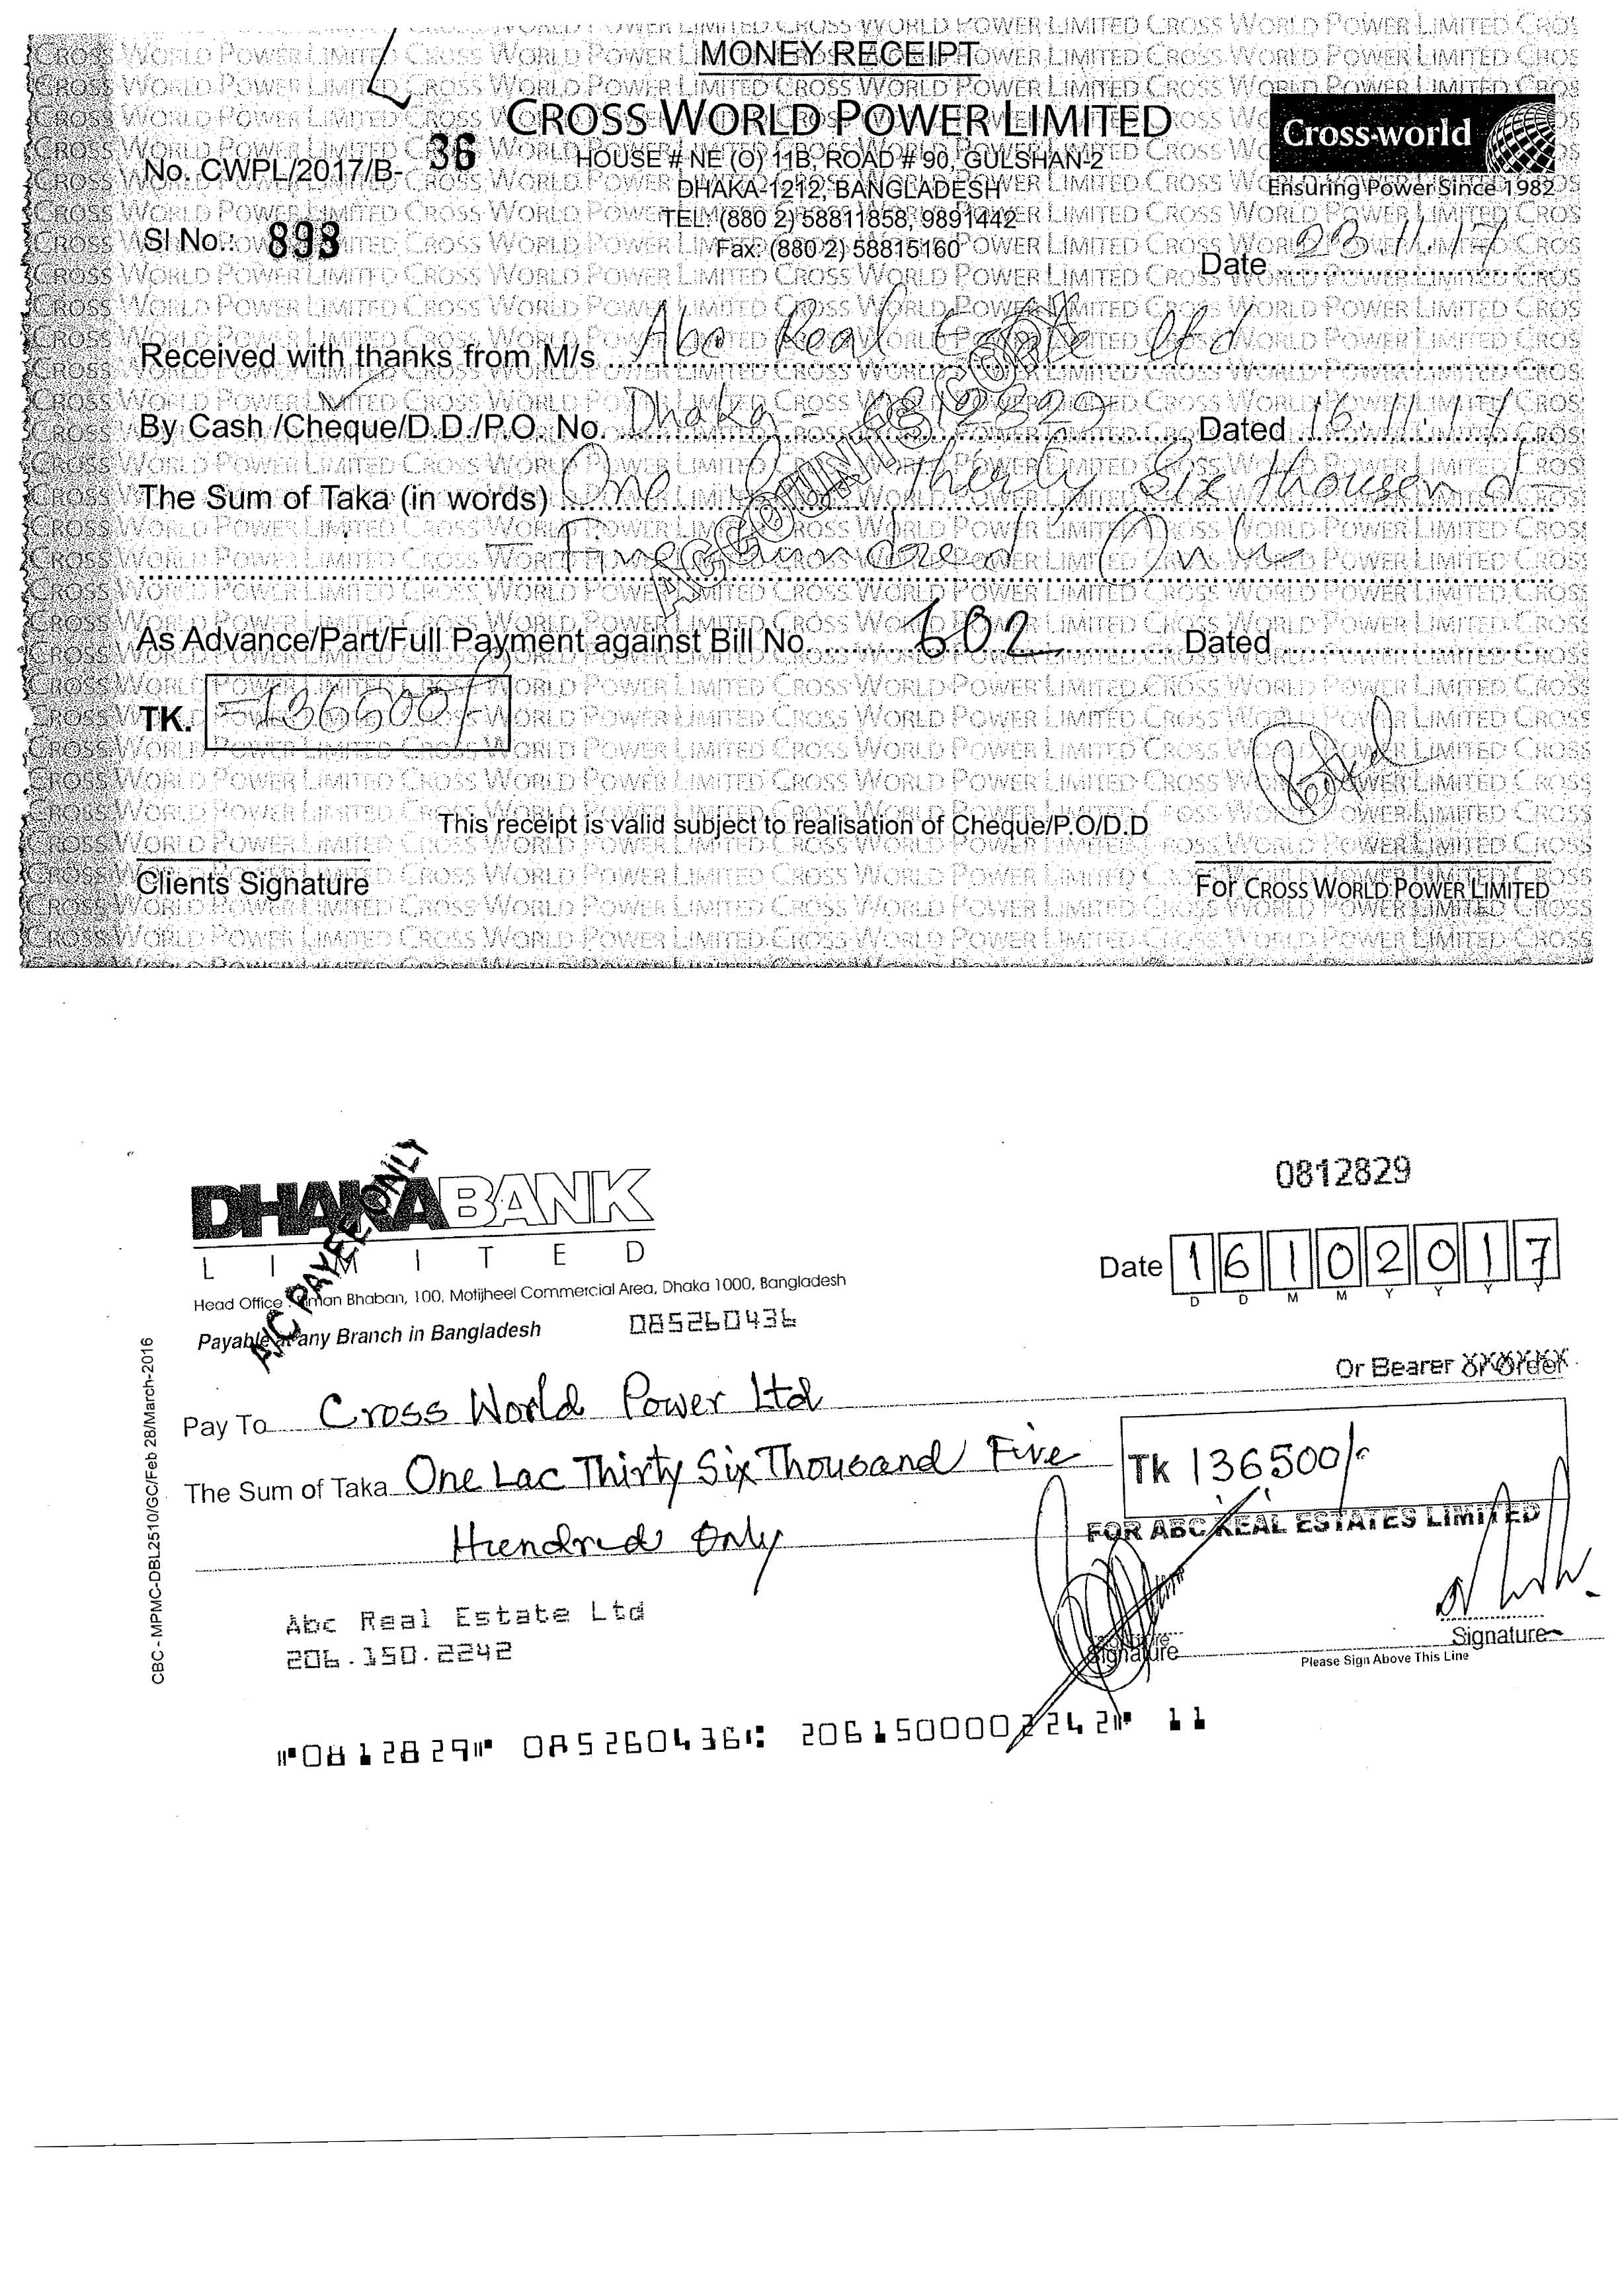 MONEY RECEIPT
CROSS WORLD POWER LIMITED
Cross-world
Ensuring Power Since 1982
No. CWPL/2017/B- 36
HOUSE # NE (O) 11B, ROAD # 90, GULSHAN-2
DHAKA-1212, BANGLADESH
TEL: (880 2) 58811858, 9891442
Fax: (880 2) 58815160
Sl No.: 893
Date 23.11.17
Received with thanks from M/s Abc Real Estate Ltd
ACCOUNTS COPY
By Cash /Cheque/D.D./P.O. No. Dhaka - Dated 16.11.17
The Sum of Taka (in words) One Thirty Six thousand
Five Hundred Only
As Advance/Part/Full Payment against Bill No. 602 Dated
TK. =136500/-
This receipt is valid subject to realisation of Cheque/P.O/D.D
Clients Signature
For CROSS WORLD POWER LIMITED
DHAKA BANK
LIMITED
A/C PAYEE ONLY
0812829
Date 16102017
D D M M Y Y Y Y
Head Office : Biman Bhaban, 100, Motijheel Commercial Area, Dhaka 1000, Bangladesh
Payable at any Branch in Bangladesh 085260436
Or Bearer or Order
Pay To Cross World Power Ltd
The Sum of Taka One Lac Thirty Six Thousand Five
Hundred Only
Tk 136500/-
FOR ABC REAL ESTATES LIMITED
Abc Real Estate Ltd
206.150.2242
Signature
Signature
Please Sign Above This Line
CBC - MPMC-DBL2510/GC/Feb 28/March-2016
⑈0812829⑈ 085260436⑆ 2061500002242⑈ 11